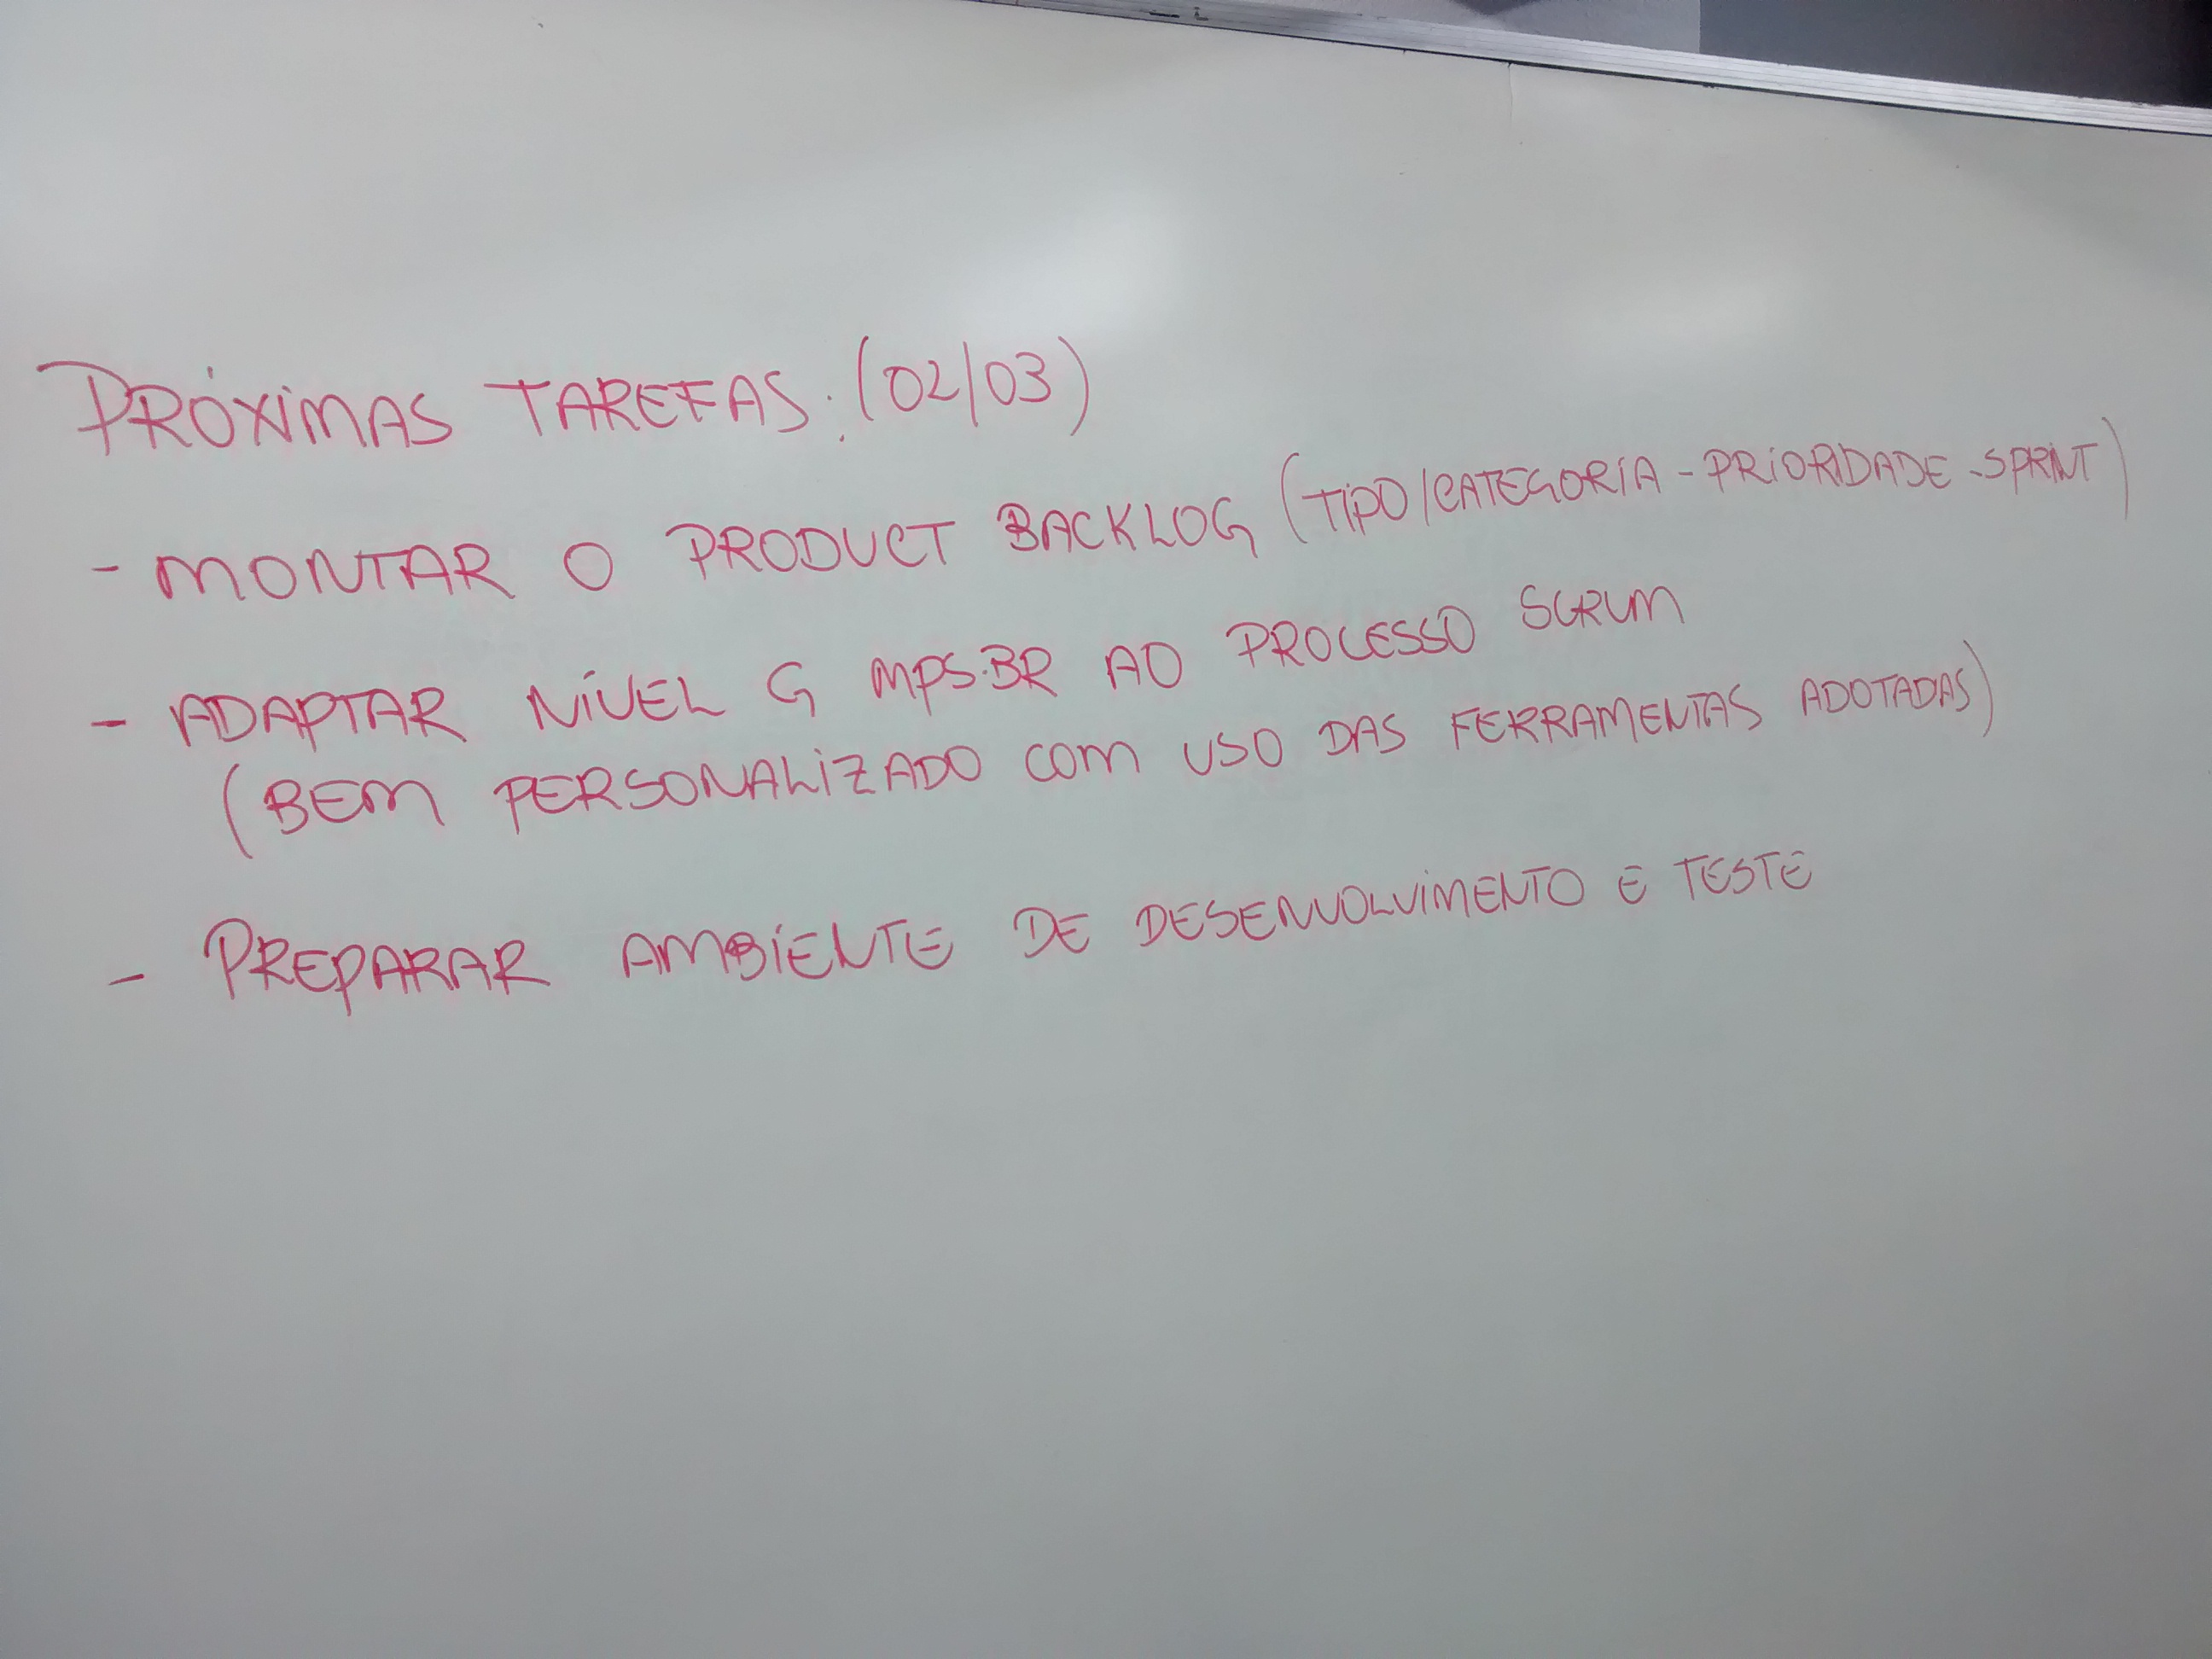 PRÓXIMAS TAREFAS: (02/03)
- MONTAR O PRODUCT BACKLOG (TIPO/CATEGORIA - PRIORIDADE - SPRINT)
- ADAPTAR NÍVEL G MPS.BR AO PROCESSO SCRUM
(BEM PERSONALIZADO COM USO DAS FERRAMENTAS ADOTADAS)
- PREPARAR AMBIENTE DE DESENVOLVIMENTO E TESTE